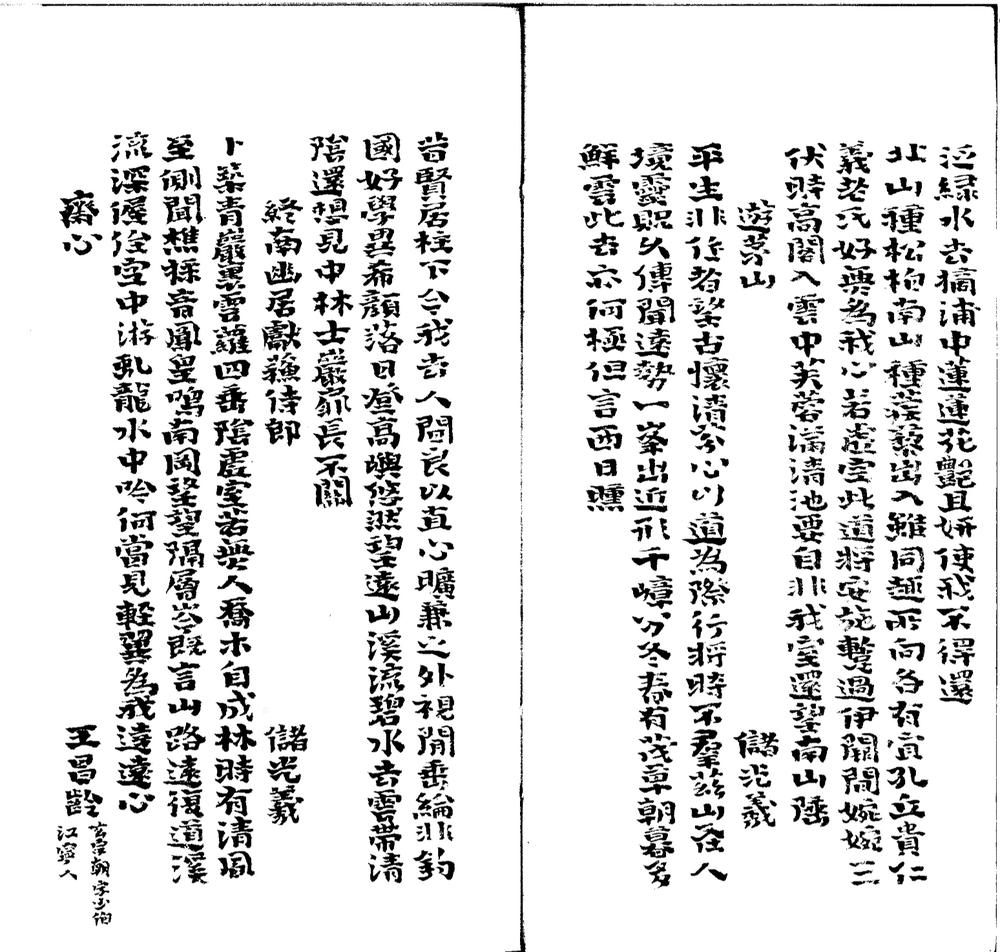 泛緑水去摘浦中蓮蓮花艷且妍使我不得還
北山種松柏南山種蒺藜出入雖同趣所向各有宜孔丘貴仁
義老氏好無為我心若虛空此道將安施暫過伊闕間婉婉三
伏時高閣入雲中芙蓉滿清池要自非我室還望南山陲
遊茅山 儲光羲
平生非作者望古懷清芬心以道為際行將時不羣茲山在人
境靈貺久傳聞遠勢一峯出近形千嶂分冬春有茂草朝暮多
鮮雲此去亦何極但言西日曛
昔賢居柱下今我去人間良以直心曠兼之外視閒垂綸非釣
國好學異希顏落日登高嶼悠然望遠山溪流碧水去雲帶清
陰還想見中林士巖扉長不關
終南幽居獻蘇侍郎 儲光羲
卜築青巖裏雲蘿四垂陰虛室若無人喬木自成林時有清風
至側聞樵採音鳳皇鳴南岡望望隔層岑既言山路遠復道溪
流深偓佺空中游虬龍水中吟何當見輕翼為我達遠心
齋心 王昌齡
玄宗朝字少伯
江寧人